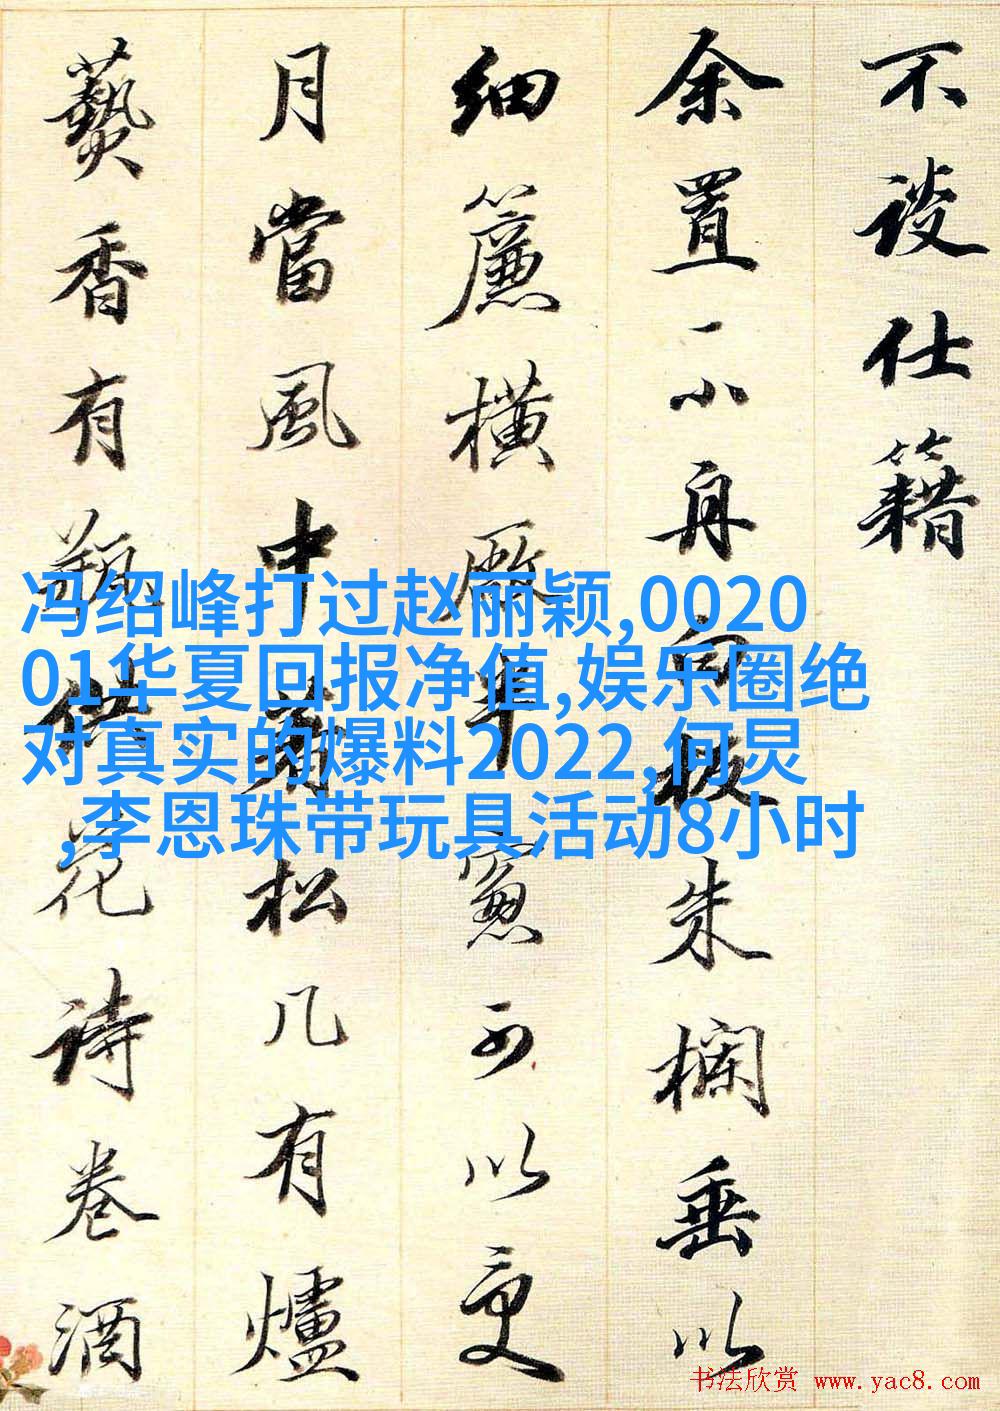 不談仕籍
余置一小舟白板朱欄垂以
細簾橫廠窻可以更
月當風中松几有爐
爇香有瓶供花詩卷酒
冯绍峰打过赵丽颖,0020
01华夏回报净值,娱乐圈绝
对真实的爆料2022,何炅
,李恩珠带玩具活动8小时
书法欣赏 www.yac8.com